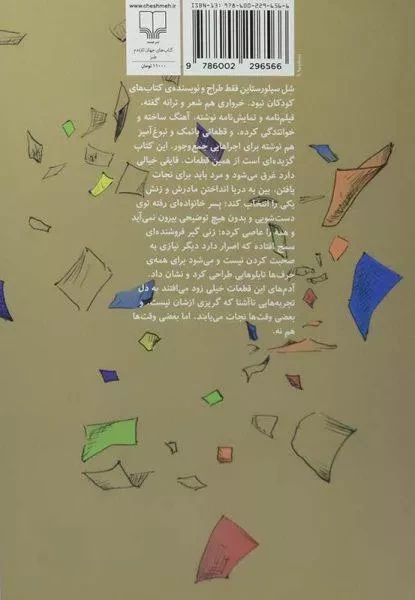 ISBN-13: 978-600-229-656-6
www.cheshmeh.ir
کتاب‌های جهان تازه‌دم
طنز
۱۱۰۰۰ تومان
9 786002 296566
شل سیلورستاین فقط طراح و نویسنده‌ی کتاب‌های
کودکان نبود. خرواری هم شعر و ترانه گفته.
فیلم‌نامه و نمایش‌نامه نوشته. آهنگ ساخته و
خوانندگی کرده. و قطعاتی بانمک و نبوغ‌آمیز
هم نوشته برای اجراهایی جمع‌وجور. این کتاب
گزیده‌ای است از همین قطعات. قایقی خیالی
دارد غرق می‌شود و مرد باید برای نجات
یافتن، بین به دریا انداختن مادرش و زنش
یکی را انتخاب کند؛ پسر خانواده‌ای رفته توی
دست‌شویی و بدون هیچ توضیحی بیرون نمی‌آید
و همه را عاصی کرده؛ زنی گیر فروشنده‌ای
سمج افتاده که اصرار دارد دیگر نیازی به
صحبت کردن نیست و می‌شود برای همه‌ی
حرف‌ها تابلوهایی طراحی کرد و نشان داد.
آدم‌های این قطعات خیلی زود می‌افتند به دل
تجربه‌هایی ناآشنا که گریزی ازشان نیست. و
بعضی وقت‌ها نجات می‌یابند. اما بعضی وقت‌ها
هم نه.